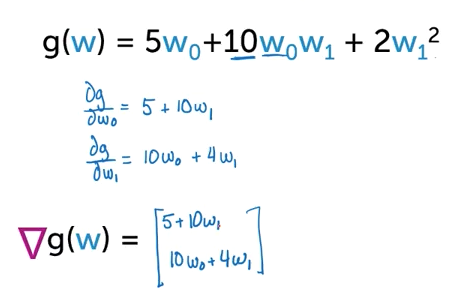 g(w) = 5w₀+10w₀w₁ + 2w₁²
∂g/∂w₀ = 5 + 10w₁
∂g/∂w₁ = 10w₀ + 4w₁
∇g(w) = [5+10w₁
10w₀+4w₁]